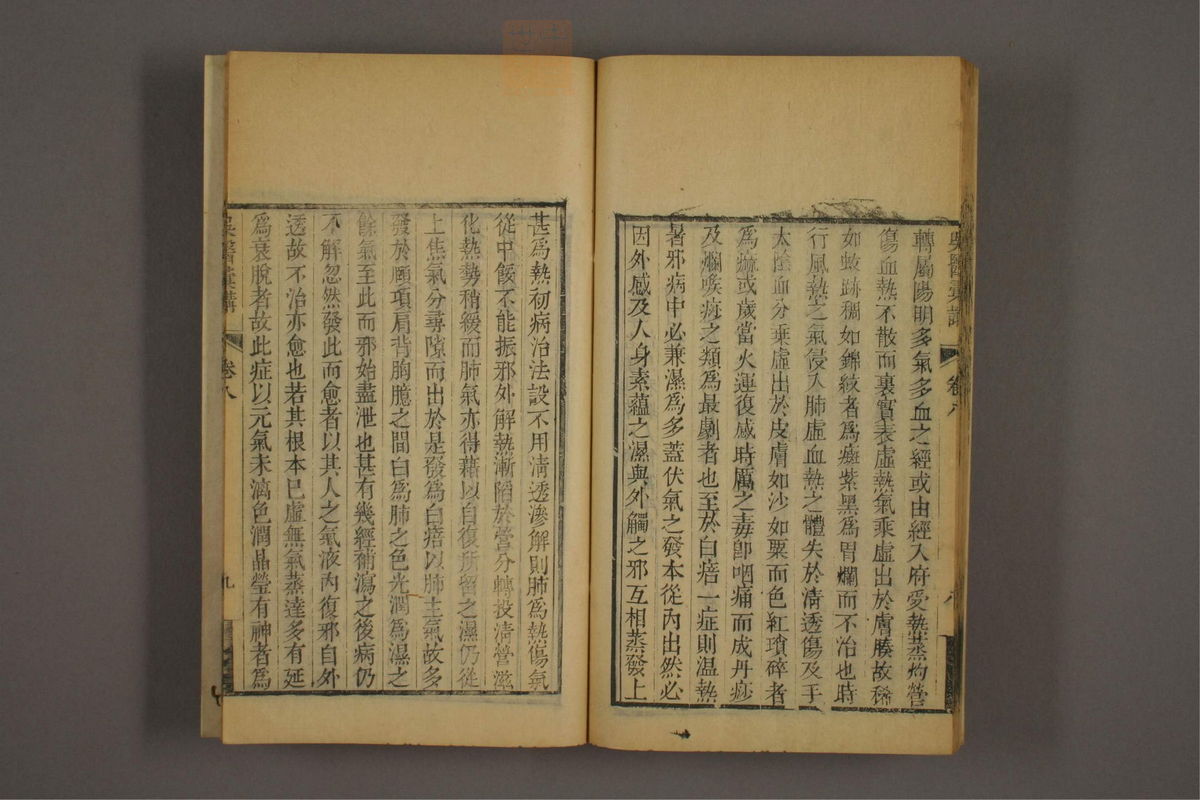 轉屬陽明多氣多血之經或由經入府受熱蒸灼營
傷血熱不散而裏實表虛熱氣乘虛出於膚腠故稀
如蚊跡稠如錦紋者爲癍紫黑爲胃爛而不治也時
行風熱之氣侵入肺虛血熱之體失於清透傷及手
太陰血分乘虛出於皮膚如沙如粟而色紅瑣碎者
爲痧或歲當火運復感時厲之毒卽咽痛而成丹痧
及爛喉痧之類爲最劇者也至於白㾦一症則温熱
暑邪病中必兼濕爲多蓋伏氣之發本從內出然必
因外感及人身素蘊之濕與外觸之邪互相蒸發上
甚爲熱初病治法設不用清透滲解則肺爲熱傷氣
從中餒不能振邪外解熱漸陷於營分轉投清營滋
化熱勢稍緩而肺氣亦得藉以自復所留之濕仍從
上焦氣分尋隙而出於是發爲白㾦以肺主氣故多
發於頸項肩背胸臆之間白爲肺之色光潤爲濕之
餘氣至此而邪始盡泄也甚有幾經補瀉之後病仍
不解忽然發此而愈者以其人之氣液內復邪自外
透故不治亦愈也若其根本已虛無氣蒸達多有延
爲衰脫者故此症以元氣未漓色潤晶瑩有神者爲
吳醫彙講
卷八
九